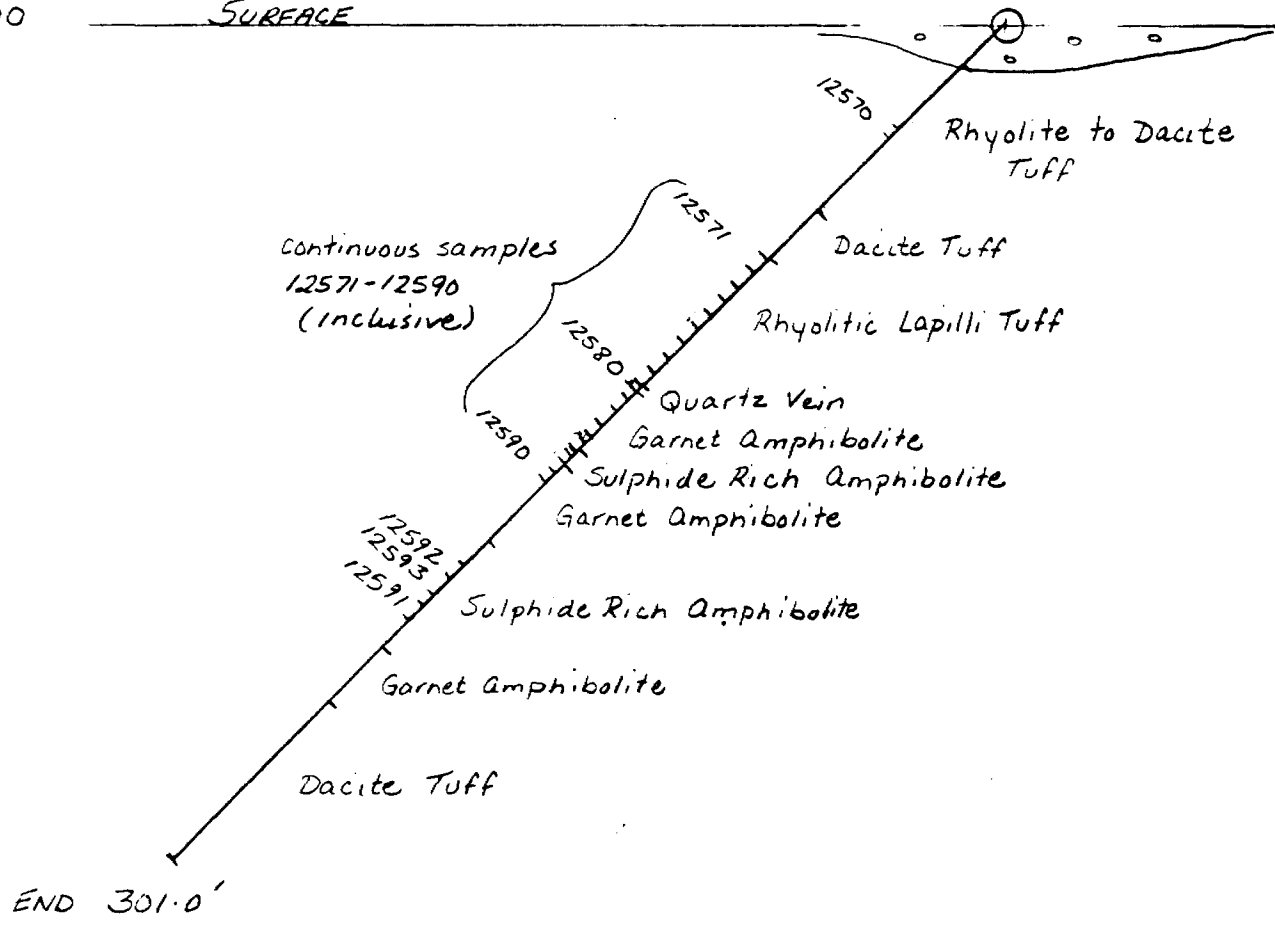 00
SURFACE
12570
Rhyolite to Dacite
Tuff
12571
Dacite Tuff
continuous samples
12571-12590
(inclusive)
Rhyolitic Lapilli Tuff
12580
Quartz Vein
12590
Garnet Amphibolite
Sulphide Rich Amphibolite
Garnet Amphibolite
12592
12593
12591
Sulphide Rich Amphibolite
Garnet Amphibolite
Dacite Tuff
END 301.0'